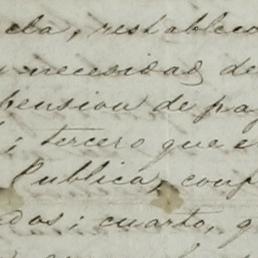 cla, restablec
necesidad de
pension de pa
; tercero que e
Publica, conf
dos; cuarto, q